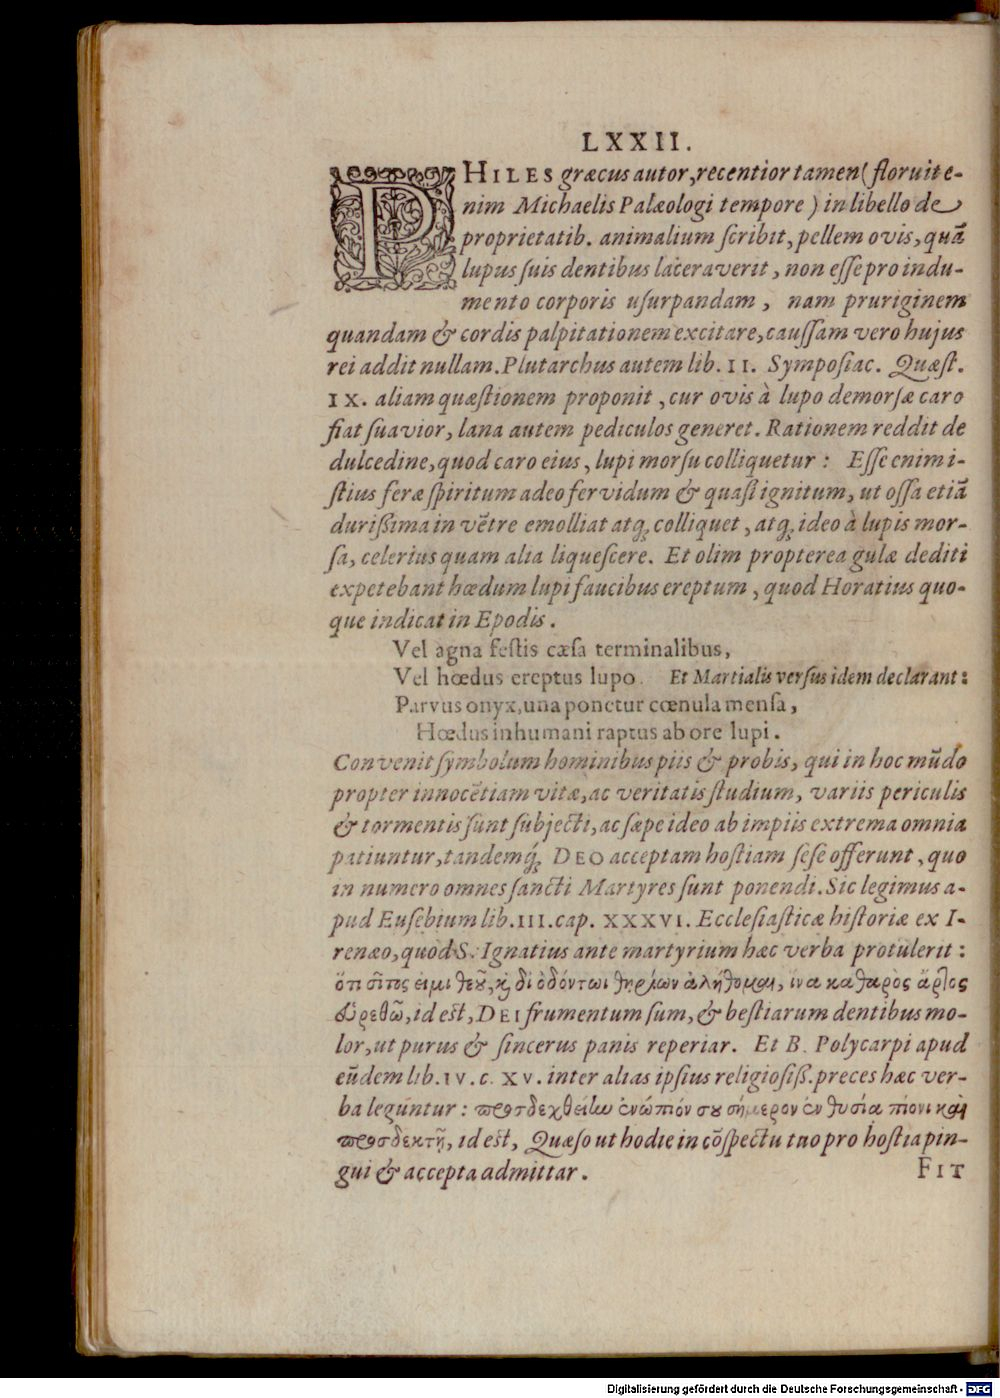 LXXII.
PHILES græcus autor, recentior tamen (floruit e-
nim Michaelis Palæologi tempore) in libello de
proprietatib. animalium ſcribit, pellem ovis, quã
lupus ſuis dentibus laceraverit, non eſſe pro indu-
mento corporis uſurpandam, nam pruriginem
quandam & cordis palpitationem excitare, cauſſam vero hujus
rei addit nullam. Plutarchus autem lib. II. Sympoſiac. Quæſt.
IX. aliam quæſtionem proponit, cur ovis à lupo demorſæ caro
fiat ſuavior, lana autem pediculos generet. Rationem reddit de
dulcedine, quod caro eius, lupi morſu colliquetur: Eſſe enim i-
ſtius feræ ſpiritum adeo fervidum & quaſi ignitum, ut oſſa etiã
durißima in vẽtre emolliat atq; colliquet, atq; ideo à lupis mor-
ſa, celerius quam alia liqueſcere. Et olim propterea gulæ dediti
expetebant hœdum lupi faucibus ereptum, quod Horatius quo-
que indicat in Epodis.
Vel agna feſtis cæſa terminalibus,
Vel hœdus ereptus lupo. Et Martialis verſus idem declarant:
Parvus onyx, una ponetur cœnula menſa,
Hœdus inhumani raptus ab ore lupi.
Convenit ſymbolum hominibus piis & probis, qui in hoc mũdo
propter innocẽtiam vitæ, ac veritatis ſtudium, variis periculis
& tormentis ſunt ſubjecti, ac ſæpe ideo ab impiis extrema omnia
patiuntur, tandemq́; DEO acceptam hoſtiam ſeſe offerunt, quo
in numero omnes ſancti Martyres ſunt ponendi. Sic legimus a-
pud Euſebium lib. III. cap. XXXVI. Eccleſiaſticæ hiſtoriæ ex I-
renæo, quod S. Ignatius ante martyrium hæc verba protulerit:
ὅτι σῖτος εἰμι θεοῦ, κỳ δἰ ὀδόντων θηρίων ἀλήθομαι, ἵνα καθαρὸς ἄρτος
εὑρεθῶ, id eſt, DEI frumentum ſum, & beſtiarum dentibus mo-
lor, ut purus & ſincerus panis reperiar. Et B. Polycarpi apud
eũdem lib. IV. c. XV. inter alias ipſius religioſiß. preces hæc ver-
ba leguntur: προσδεχθείην ἐνώπιόν σου σήμερον ἐν θυσία πίονι καὶ
προσδεκτῇ, id eſt, Quæſo ut hodie in cõſpectu tuo pro hoſtia pin-
gui & accepta admittar.
FIT
Digitalisierung gefördert durch die Deutsche Forschungsgemeinschaft - DFG